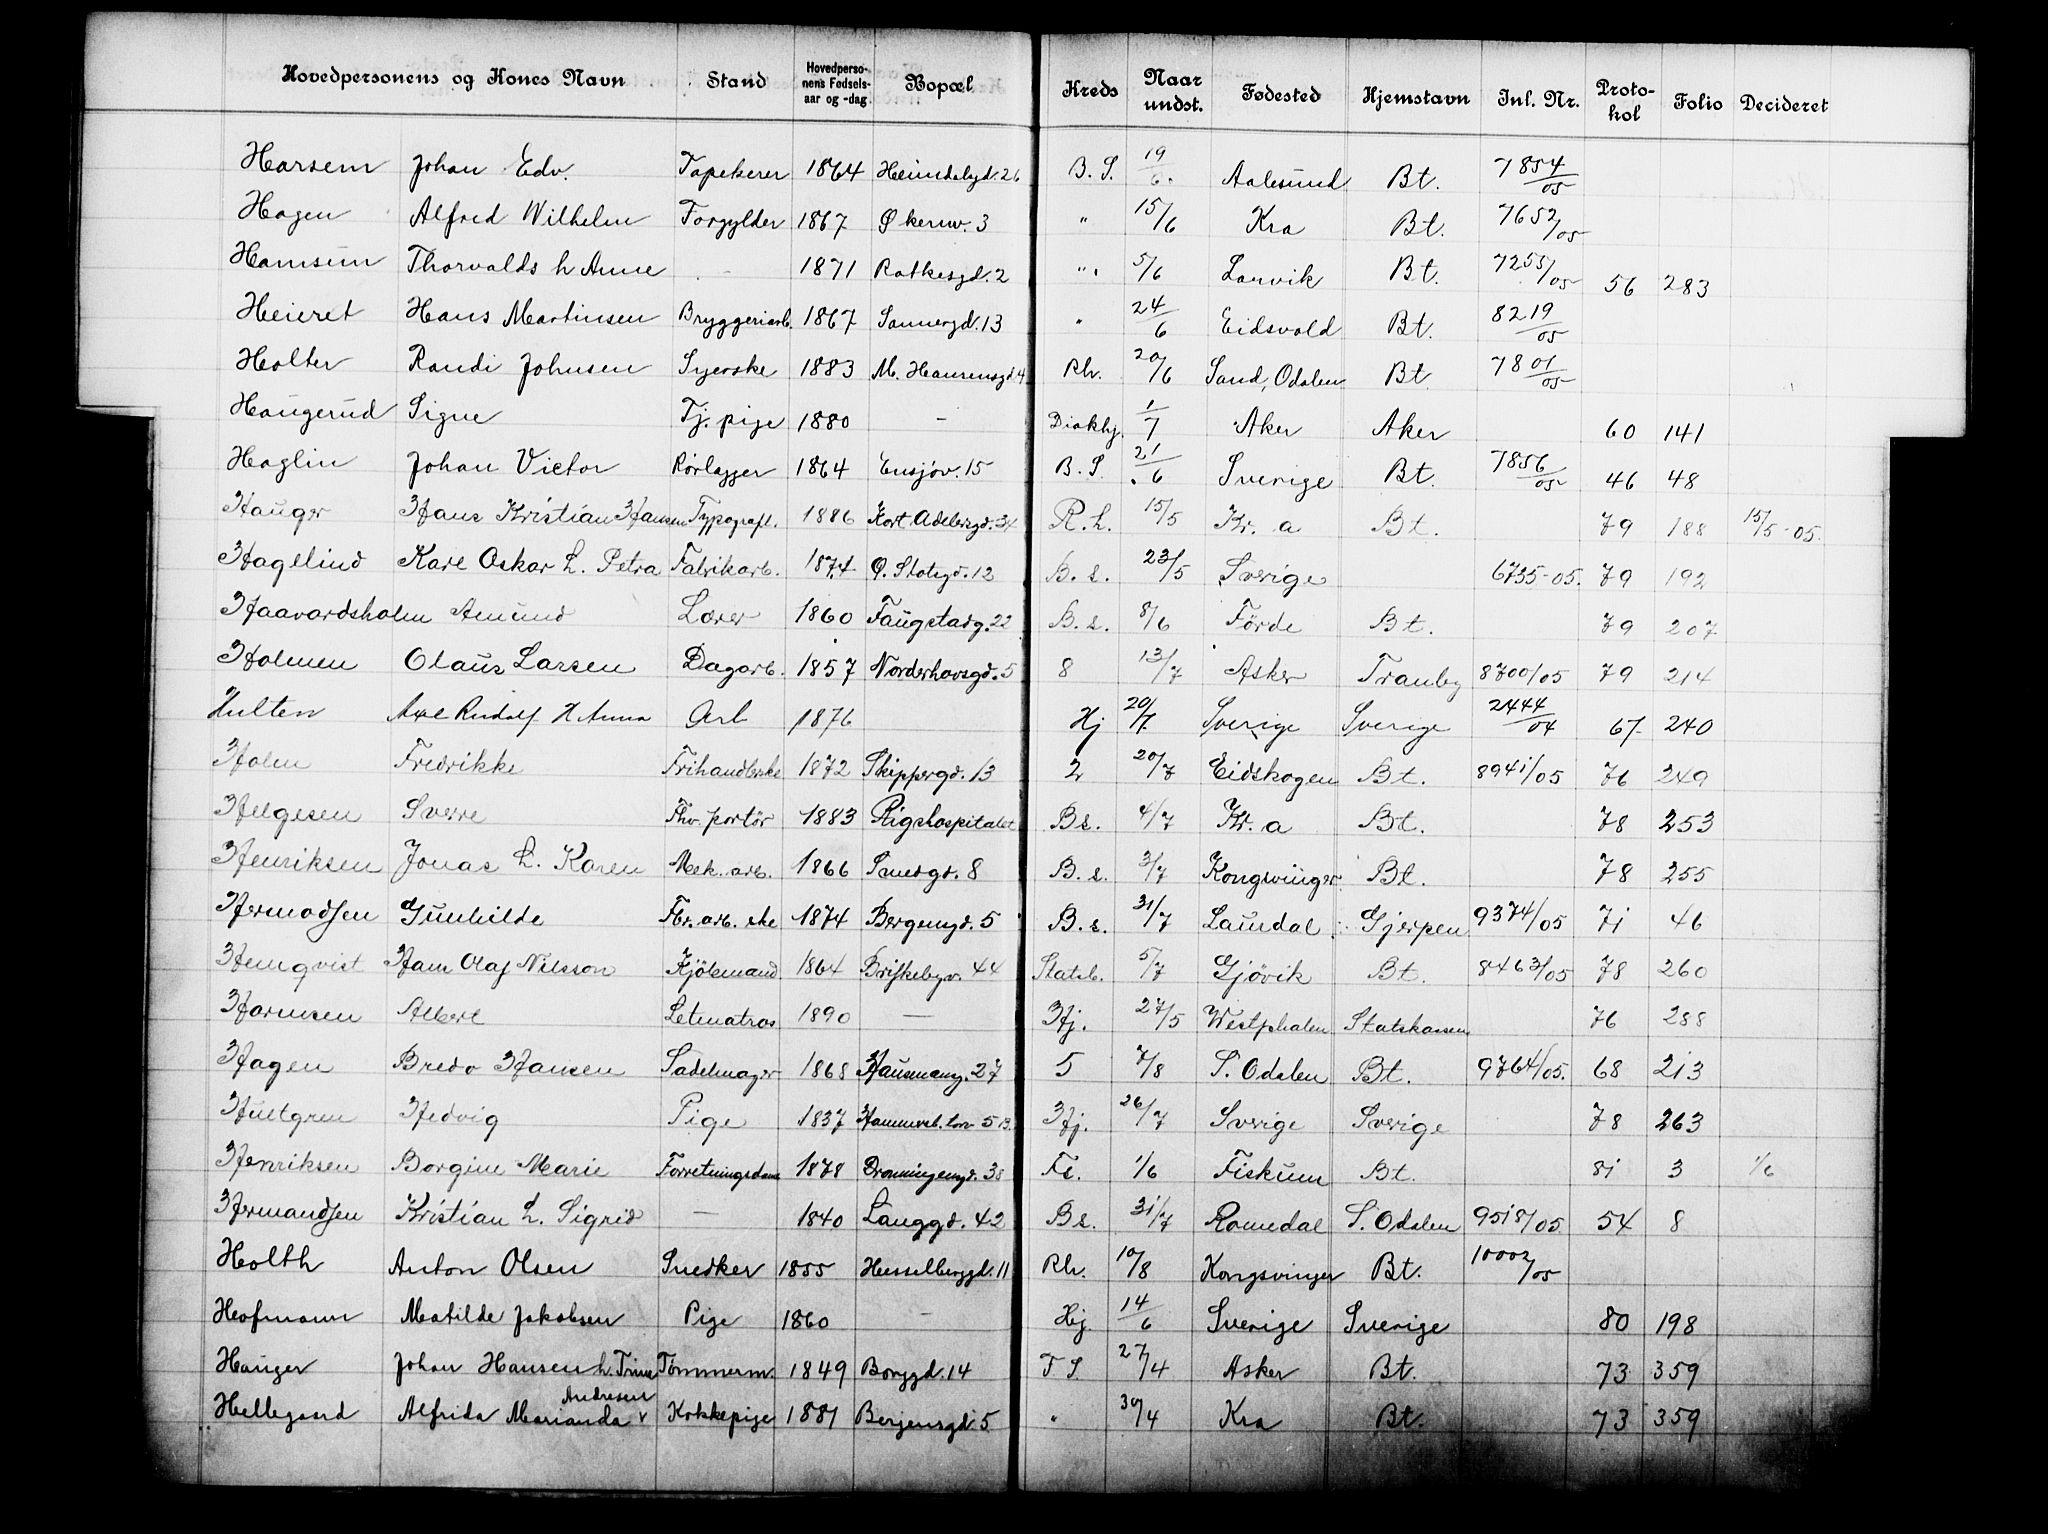 Hovedpersonens og Kones Navn Stand Hovedpersonens Fødselsaar og -dag Bopæl Kreds Naar undst. Fødested Hjemstavn Inl. Nr. Protokol Folio Decideret
Harsem Johan Edv. Tapetserer 1864 Heimdalsgd. 26 B. S. 19/6. Aalesund Bt. 7854/05
Hagen Alfred Wilhelm Forgylder 1867 Økernv. 3 " 15/6 Kra Bt. 7652/05
Hamsun Thorvalds h Anne - 1871 Ratkesgd. 2 " 5/6 Larvik Bt. 7255/05 56 283
Heieret Hans Martinsen Bryggeriarb. 1867 Sannergd. 13 " 24/6 Eidsvold Bt. 8219/05
Holter Randi Johnsen Syerske 1883 M. Hauxensgd. 4 Rh. 20/6 Sand, Odalen Bt. 7801/05
Haugerud Signe Tj. pige 1880 - Diakhj. 1/7 Aker Aker 60 141
Haglin Johan Victor Rørlægger 1864 Ensjøv. 15 B. S. 21/6 Sverige Bt. 7856/05 46 48
Hauger Hans Kristian Hansen Typograf. 1886 Kort Adelersgd. 34 R. h. 15/5 Kr. a Bt. 79 188 15/5-05.
Hagelind Karl Oskar h. Petra Fabrikarb. 1874 Ø. Slotsgd. 12 B. s. 23/5 Sverige 6735-05. 79 192
Haavardsholm Amund Lærer 1860 Faugstadg. 22 B. s. 8/6 Förde Bt. 79 207
Holmen Olaus Larsen Dagarb. 1857 Norderhovsgd. 5 8 13/7 Asker Tranby 8700/05 79 214
Hulten Axel Rudolf H Anna Arb 1876 Hj 20/7. Sverige Sverige 2444/04 67 240
Holen Fredrikke Frihandlerske 1872 Skippergd. 13 2 20/7 Eidskogen Bt. 8941/05 76 249
Helgesen Sverre Fhv. portör 1883 Rigshospitalet Bs. 4/7 Kr. a Bt. 78 253
Henriksen Jonas h. Karen Mek. arb. 1866 Smedgd. 8 B. s. 3/7 Kongsvinger Bt. 78 255
Hermodsen Gunhilde Fbr. arb. ske 1874 Bergensgd. 5 B. s. 31/7 Laurdal Gjerpen 9374/05 71 46
Hemqvist Hans Olaf Nilsson Kjölemand 1864 Briskebyv. 44 Statsb. 5/7 Gjövik Bt. 8463/05 78 260
Harmsen Albert Letmatros 1890 — Hj. 27/5 Westphalen Statskassen 76 288
Hagen Bredo Hansen Sadelmager 1868 Hausmansg. 27 5 7/8 S. Odalen Bt. 9764/05. 68 213
Hultgren Hedvig Pige 1837 Hammersb. torv 5 B. Hj. 26/7 Sverige Sverige 78 263
Henriksen Borgine Marie Forretningsdame 1878 Dronningensgd. 38 Fs. 1/6 Fiskum Bt. 81 3 1/6
Hermandsen Kristian h. Sigrid — 1840 Langgd. 42 Bs. 31/7 Romedal S. Odalen 9518/05. 54 8
Holth Anton Olsen Snedker 1855 Hesselberggd. 11 Rh. 10/8 Kongsvinger Bt. 10002/05
Hofmann Matilde Jakobsen Pige 1860 - Hj. 14/6 Sverige Sverige 80 198
Hauger Johan Hansen h. Trine Tømmerm. 1849 Borggd. 14 F S. 27/4 Asker Bt. 73 359
Hellegaard Alfrida Marianda Andresen Kokkepige 1881 Berjensgd. 5 " 30/4 Kra Bt. 73 359